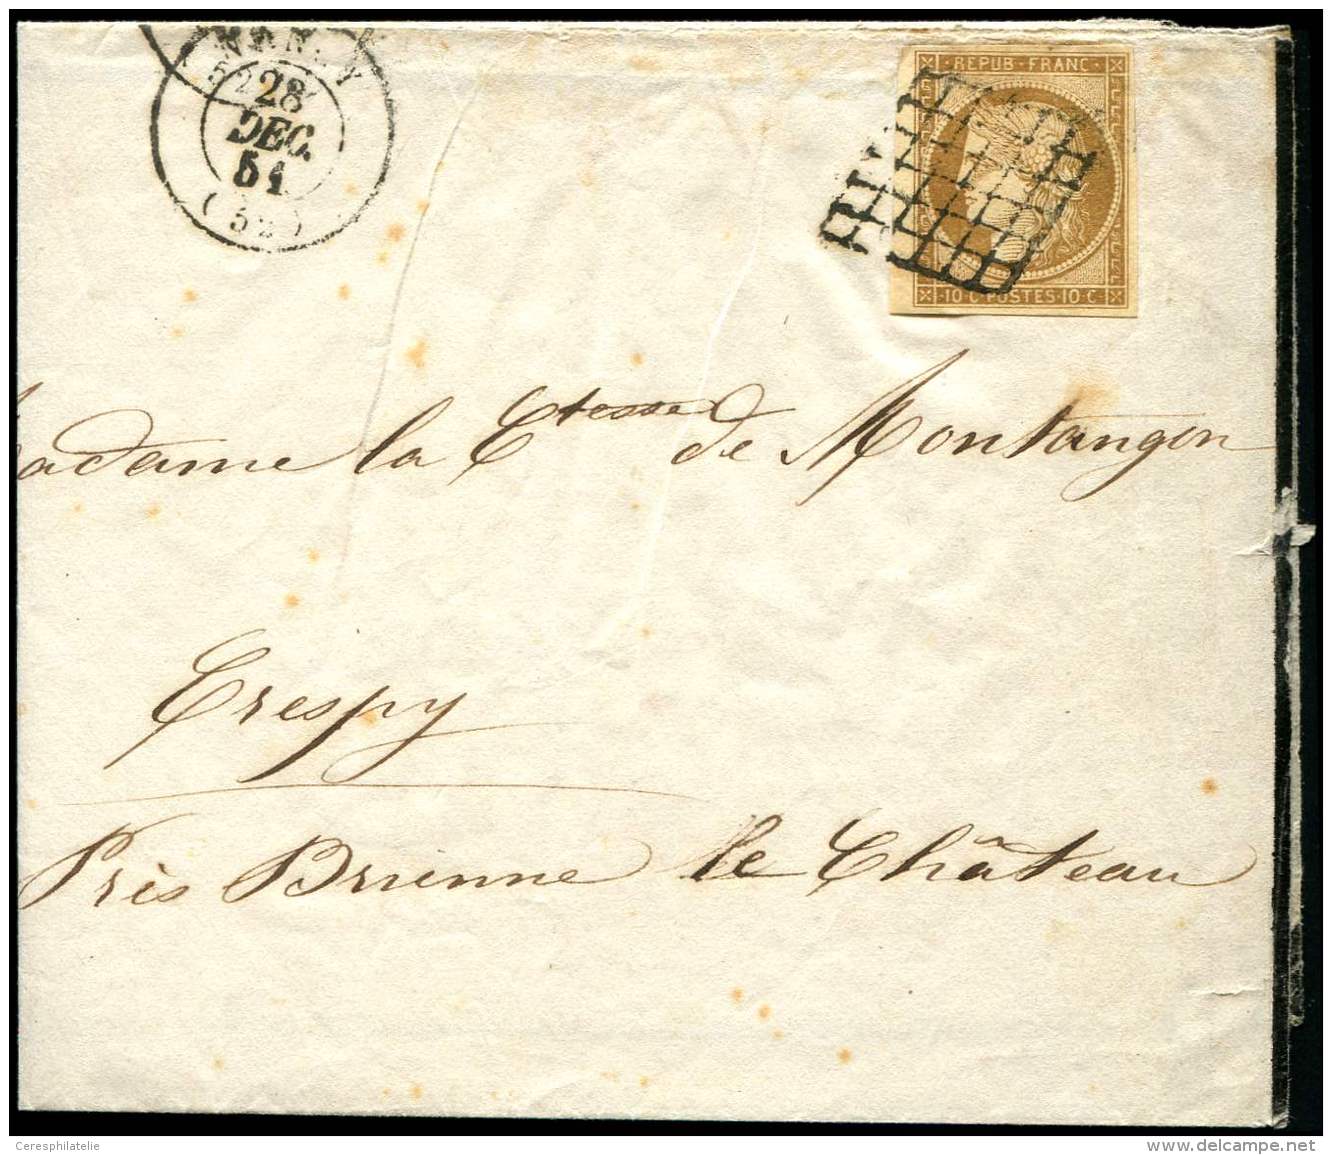 28
DEC.
51
(52)
REPUB · FRANC ·
10 C · POSTES · 10 C
Madame la Ctesse de Montangon
Crespy
Près Brienne le Château
Ceresphilatelie
delcampe.net